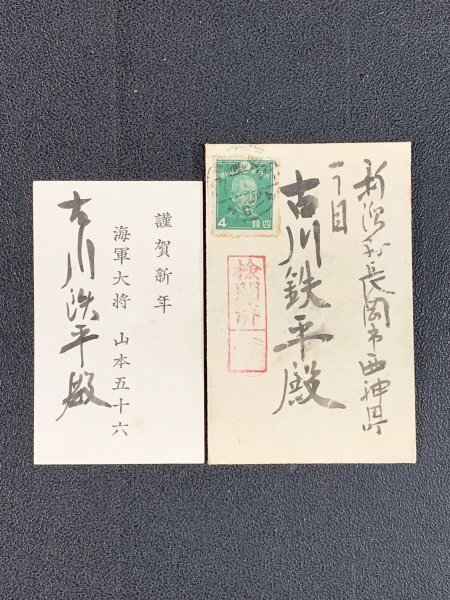 謹賀新年
海軍大将 山本五十六
古川鉄平殿
新潟県長岡市西神田町
一丁目
古川鉄平殿
検閲済
4 銭四